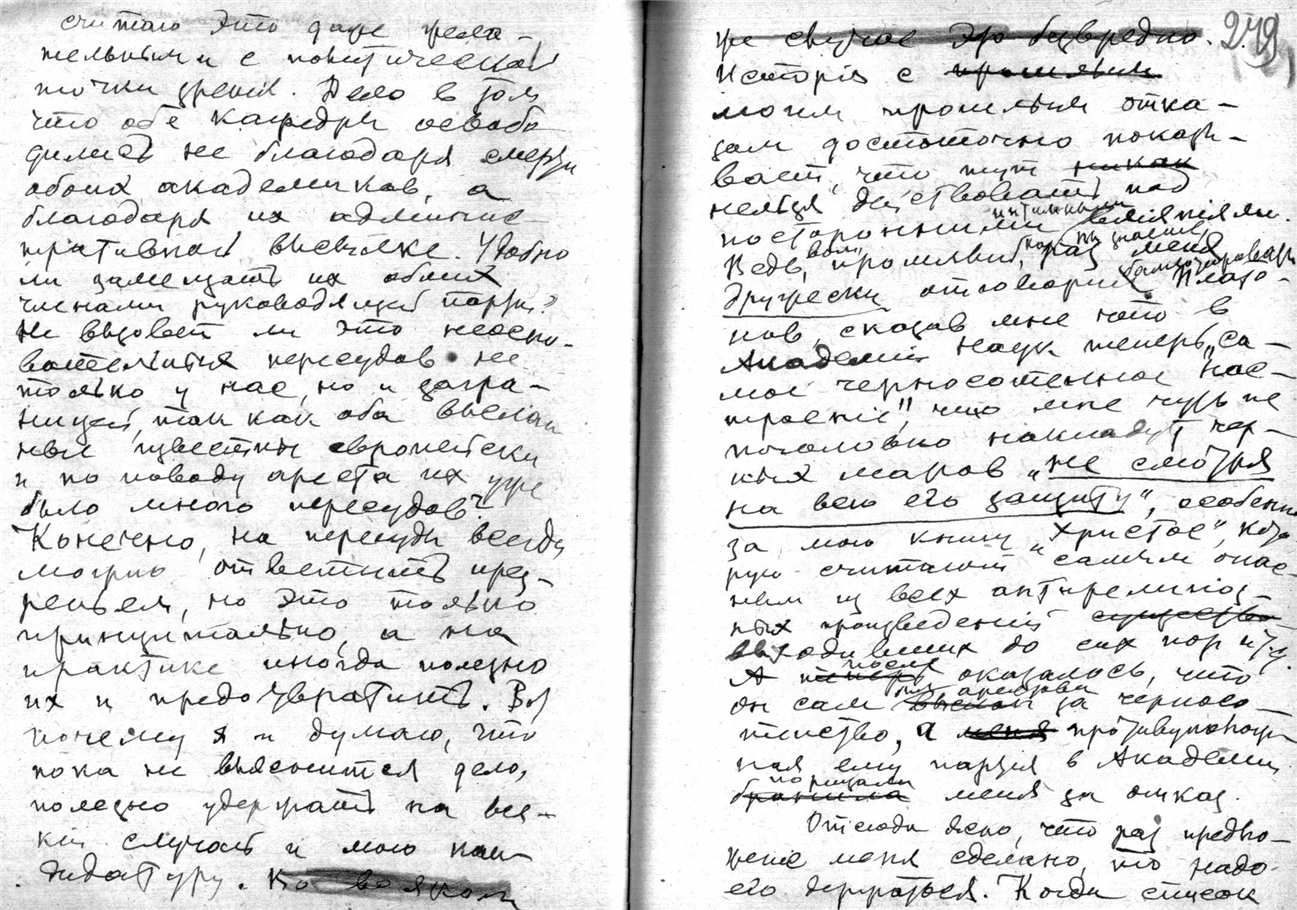 считаю это даже жела-
тельным и с политической
точки зрения. Дело в том
что обе кафедры освобо
дились не благодаря смерти
обоих академиков, а
благодаря их админис-
тративной высылке. Удобно
ли замещать их обоих
членами руководящей партии?
Не вызовет ли это неосно-
вательных пересудов не
только у нас, но и загра-
ницей, так как оба выслан
ные известны европейски
и по поводу ареста их уже
было много пересудов?
Конечно, на пересуды всегда
можно ответить през-
реньем, но это только
принципиально, а на
практике иногда полезно
их и предотвратить. Вот
почему я и думаю, что
пока не выяснится дело,
полезно удержать на вся-
кий случай и мою кан-
дидатуру. Ко всяком
249
же случае это безвредно.
Исторія с прошлым
моим прошлым отка-
зом достаточно показы-
вает, что тут никак
нельзя действовать под
посторонними интимными влияніями.
Ведь, вон, прошлый, как вы знаете, раз меня
дружески отговорил Плато-
нов, сказав мне что в
Академіи наук теперь „са-
мое черносотенное нас-
троеніе", что мне чуть не
поголовно накладут чер-
ных шаров „не смотря
на всю его защиту", особенно
за мою книгу „Христос", кото
рую считают самым опас-
ным из всех антирелигіоз-
ных произведеній существо
выходивших до сих пор и т. д.
А теперь после оказалось, что
он сам выслан был арестован за черносо-
тенство, а меня противуполож
ная ему партія в Академіи
бранила порицала меня за отказ.
Отсюда ясно, что раз предло-
женіе меня сделано, то надо
его держаться. Когда список